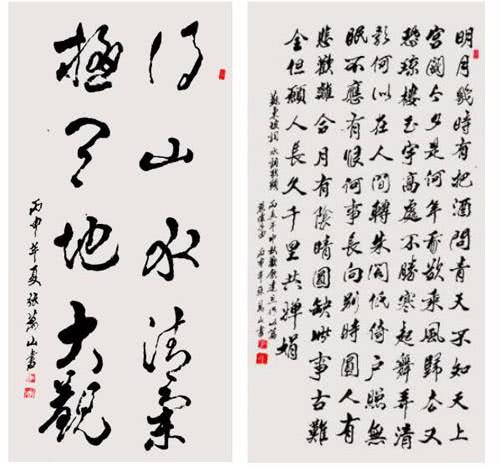 得山水清氣
極天地大觀
丙申年夏張萬山書
明月幾時有把酒問青天不知天上
宮闕今夕是何年我欲乘風歸去又
恐瓊樓玉宇高處不勝寒起舞弄清
影何似在人間轉朱閣低倚户照無
眠不應有恨何事長向別時圓人有
悲歡離合月有陰晴圓缺此事古難
全但願人長久千里共嬋娟
蘇東坡詞水調歌頭丙辰年中秋歡飲達旦作此篇
兼懷子由丙申年張萬山書